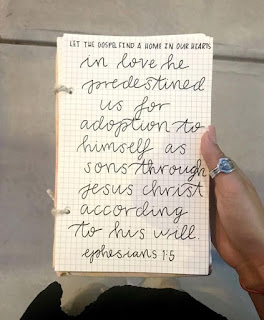 LET THE GOSPEL FIND A HOME IN OUR HEARTS
in love he
predestined
us for
adoption to
himself as
sons through
jesus christ
according
to his will.
ephesians 1:5